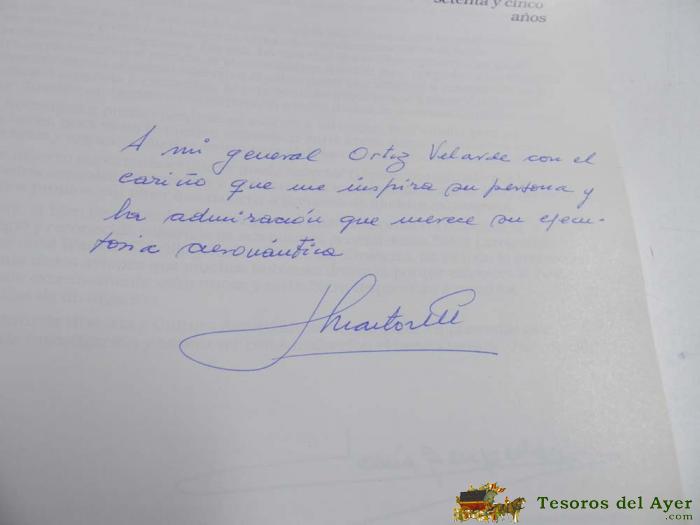 setenta y cinco
años
A mi general Ortiz Velarde con el
cariño que me inspira su persona y
la admiración que merece su ejecu-
toria aeronáutica
Tesoros del Ayer
.com